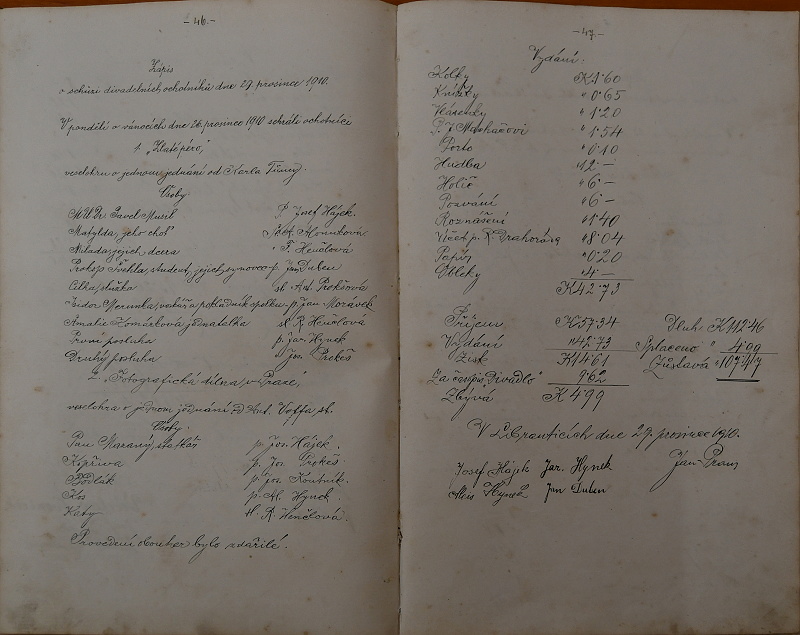 - 46. -
Zápis
o schůzi divadelních ochotníků dne 29. prosince 1910.
V pondělí o vánocích dne 26. prosince 1910 sehráli ochotníci
1. „Zlaté péro,"
veselohru o jednom jednání od Karla Tůmy.
Osoby
MUDr. Pavel Musil P. Josef Hájek.
Matylda, jeho choť
Milada, jejich dcera " F. Henčlová
Prokop Šuhla, student, jejich synovec p. Jan Duben
Celka, služka sl. Ant. Prokšová
Isidor Merunka, vekář a pokladník spolku p. Jan Morávek
Amalie Komárková jednatelka sl. R. Henčlová
První posluha p. Jar. Hynek
Druhý posluha " Jos. Prokeš
2. „Fotografická dílna v Praxi,
veselohra o jednom jednání od Ant. Voffa st.
Osoby.
Pan Mazaný, statkář p. Jos. Hájek.
Kopřiva p. Jos. Prokeš
Bodlák p. Jos. Koutník.
Kos p. Al. Hynek.
Katy sl. R. Henčlová.
Provedení obou her bylo zdařilé.
- 47. -
Vydání:
Kolky K 1·60
Knížky " 0·65
Vlásenky " 1·20
P. J. " 1·54
Porto " 0·10
Hudba " 12 -
Holič " 6 -
Pozvání " 6 -
Roznášení " 1·40
Účet p. R. Drahoráda " 8·04
Papír " 0·20
Obleky " 4 -
K 42·73
Příjem K 57·34 Dluh K 112·46
Vydání " 42·73 Splaceno " 4·99
Zisk K 14·61 Zůstává " 107·47
Za časopis „Divadlo" 9·62
Zbývá K 4·99
V dne 29. prosince 1910.
Josef Hájek Jar. Hynek Jan
Alois Hynek Jan Duben